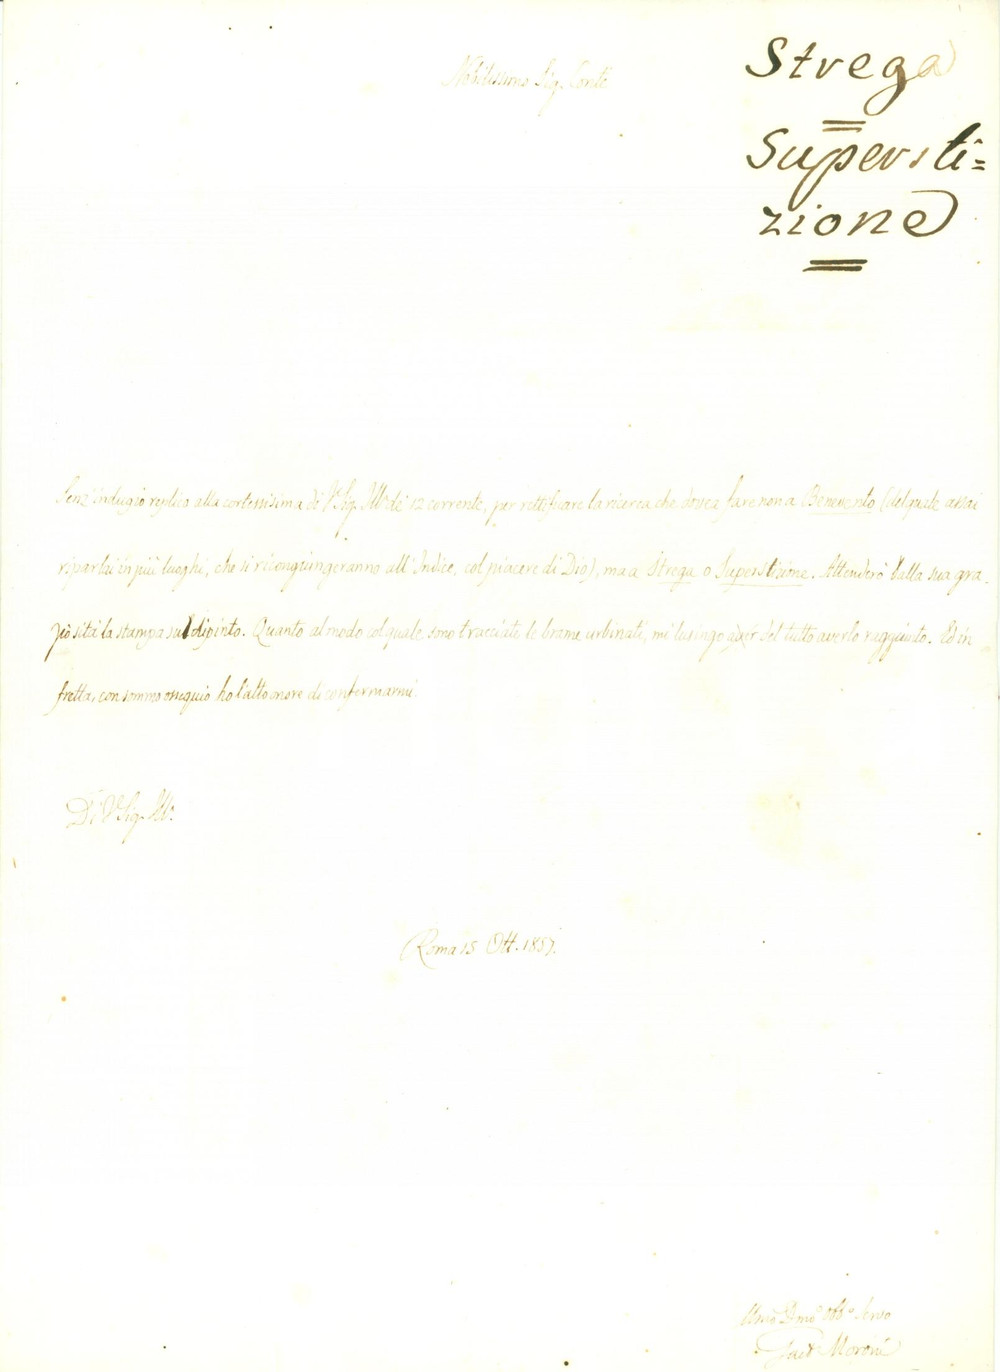 Nobilissimo Sig. Conte
Strega
Supersti=
zione
Senz'indugio replico alla cortesissima di V. Sig. Ill.a de' 12 corrente, per rettificare la ricerca che dovea fare non a Benevento (del quale assai
riparlai in più luoghi, che si ricongiungeranno all'Indice, col piacere di Dio), ma a Strega o Superstizione. Attenderò dalla sua gra-
ziosità la stampa sul dipinto. Quanto al modo col quale sono tracciate le brame urbinati, mi lusingo aver del tutto averlo raggiunto. Ed in
fretta, con sommo ossequio ho l'alto onore di confermarmi
Di V. Sig. Ill.a
Roma 15 Ott. 1857.
Obb.o Servo
Gaet. Moroni